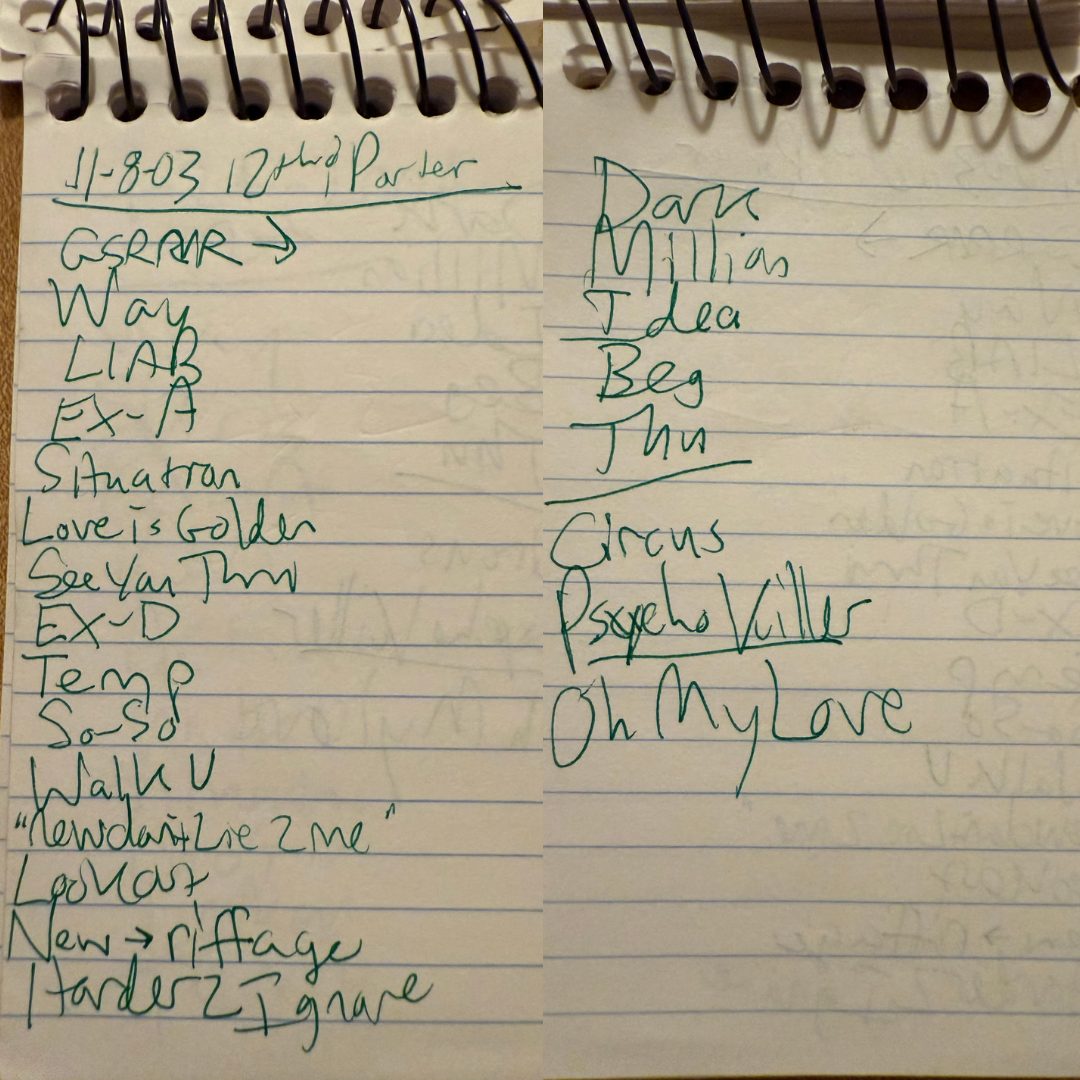 11-8-03 12th & Porter
GSRRNR →
Way
LIAB
EX-A
Situation
Love is Golden
See You Thru
EX-D
Temp
So-So
Walk U
"New don't Lie 2 me"
Lookout
New → riffage
Harder 2 Ignore
Dark
Million
Idea
Beg
Thu
Circus
Psycho Killer
Oh My Love